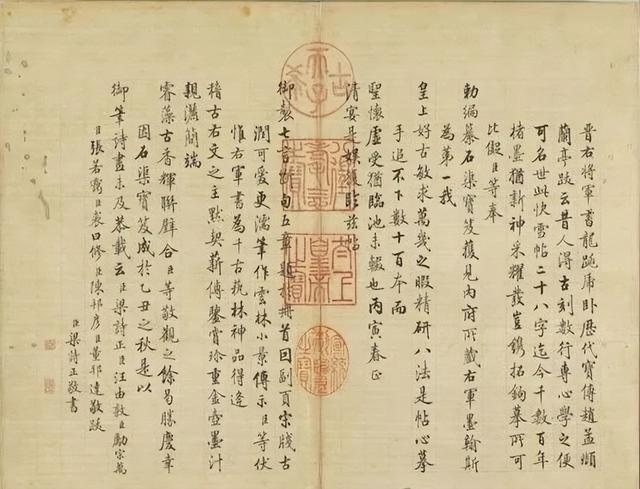 晉右將軍書龍跳虎臥歷代寶傳趙孟頫
蘭亭跋云昔人得古刻數行專心學之便
可名世此快雪帖二十八字迄今千數百年
楮墨猶新神采耀發豈鐫拓鉤摹所可
比儗臣等奉
勅編纂石渠寶笈獲見內府所藏右軍墨翰斯
為第一我
皇上好古敏求萬幾之暇精研八法是帖心摹
手追不下數十百本而
聖懷虛受猶臨池未輟也丙寅春正
清宴是娛復貽茲帖
御製七言絕句五章題於冊首回副頁宋牋古
潤可愛更濡筆作雲林小景傳示臣等伏
惟右軍書為千古藝林神品得逢
稽古右文之主默契薪傳鑒賞珍重金壺墨汁
親灑簡端
睿藻古香輝聯璧合臣等敬觀之餘曷勝慶幸
因石渠寶笈成於乙丑之秋是以
御筆詩畫未及恭載云臣梁詩正臣汪由敦臣勵宗萬
臣張若靄臣裘曰修臣陳邦彥臣董邦達敬跋
臣梁詩正敬書
古希天子
壽
太上皇帝之寶